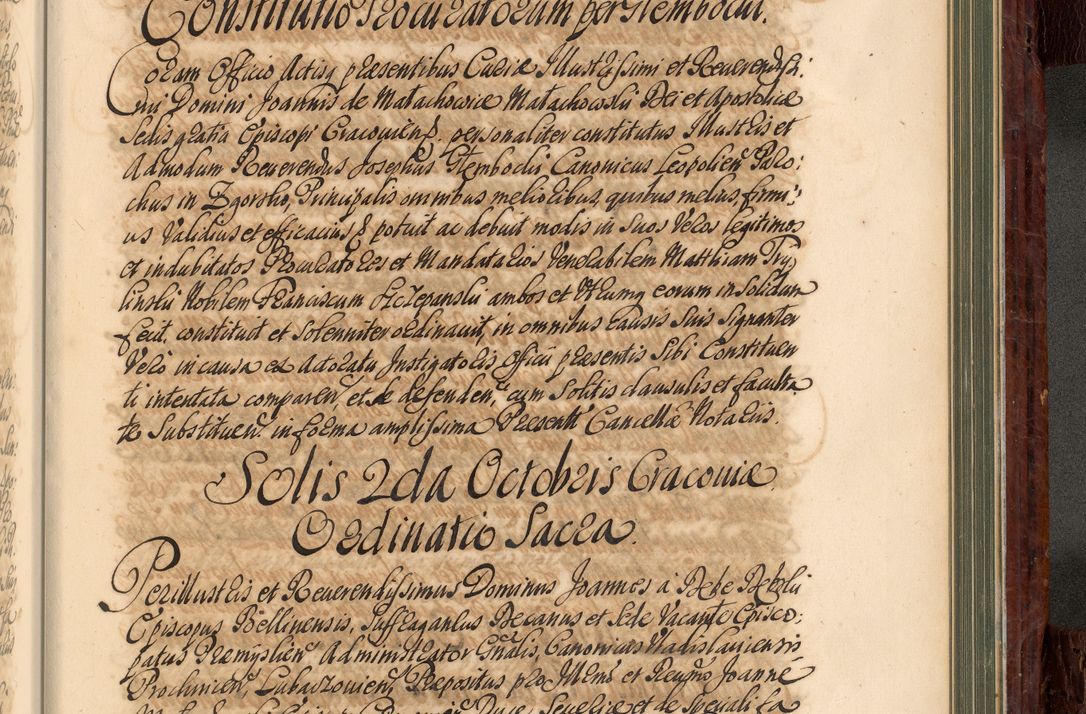 Constitutio Procuratorum per Stembocki.
Coram Officio Actisq præsentibus Curiæ Illustrissimi et Reverendissi:
mi Domini Joannis de Małachowice Małachowski Dei et Apostolicæ
Sedis gratia Episcopi Cracovien̄ personaliter constitutus Illustris et
Admodum Reverendus Josephus Stembocki Canonicus Leopolien̄ Paro:
chus in Zgorsko, Principalis omnibus melioribus, quibus melius, firmi:
us validius et efficacius potuit ac debuit modis in suos veros legitimos
et indubitatos Procuratores et Mandatarios Venerabilem Matthiam Try
linski Nobilem Franciscum Szczepanski ambos et eorum in solidum
fecit, constituit et solenniter ordinavit, in omnibus causis suis signanter
Vero in causa ex Actoratu Instigatoris Officii præsentis sibi Constituen
ti intentata comparen̄ et se defenden̄, cum solitis clausulis et faculta
te substituen̄ in forma amplissima Præsentt Cancellæ Notariis.
Solis 2da Octobris Cracoviæ
Ordinatio Sacra.
Perillustris et Reverendissimus Dominus Joannes à Dębe Dębski
Episcopus Bellinensis, Suffraganeus Decanus et Sede Vacante Episco:
patus Præmyslien̄ Administrator Gn̄alis, Canonicus Vladislaviensis
Prochnicen̄, Lubaczovien̄, Præpositus pro Illmo et Reverendmo Joanne